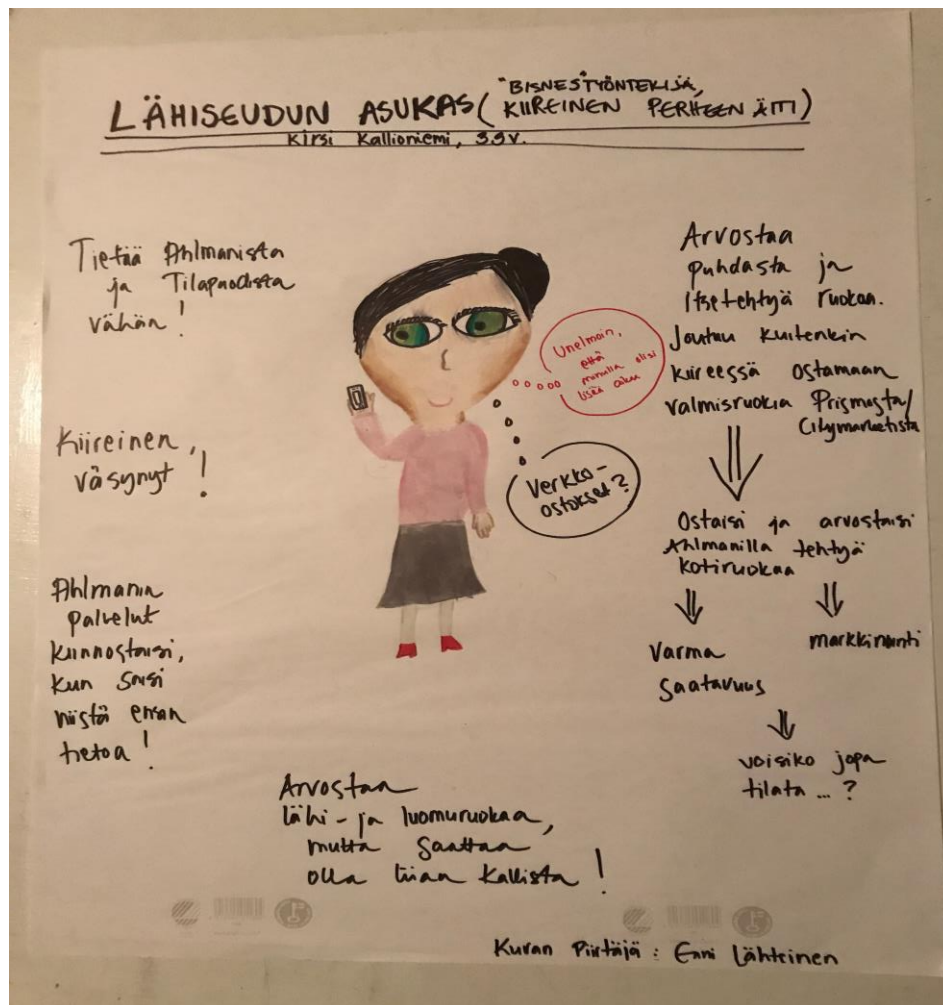 "BISNES"TYÖNTEKIJÄ,
LÄHISEUDUN ASUKAS (KIIREINEN PERHEEN ÄITI)
Kirsi Kallioniemi, 39v.
Tietää Ahlmanista
ja Tilapuodista
vähän!
Kiireinen,
väsynyt!
Ahlmanin
palvelut
kiinnostaisi,
kun saisi
niistä ensin
tietoa!
Unelmoin,
että
minulla olisi
lisää aikaa
Verkko-
ostokset?
Arvostaa
puhdasta ja
itsetehtyä ruokaa.
Joutuu kuitenkin
kiireessä ostamaan
valmisruokia Prismasta/
Citymarketista
Ostaisi ja arvostaisi
Ahlmanilla tehtyä
kotiruokaa
Varma
saatavuus
markkinointi
voisiko jopa
tilata ...?
Arvostaa
lähi- ja luomuruokaa,
mutta saattaa
olla liian kallista!
Kuvan Piirtäjä: Enni Lähteinen